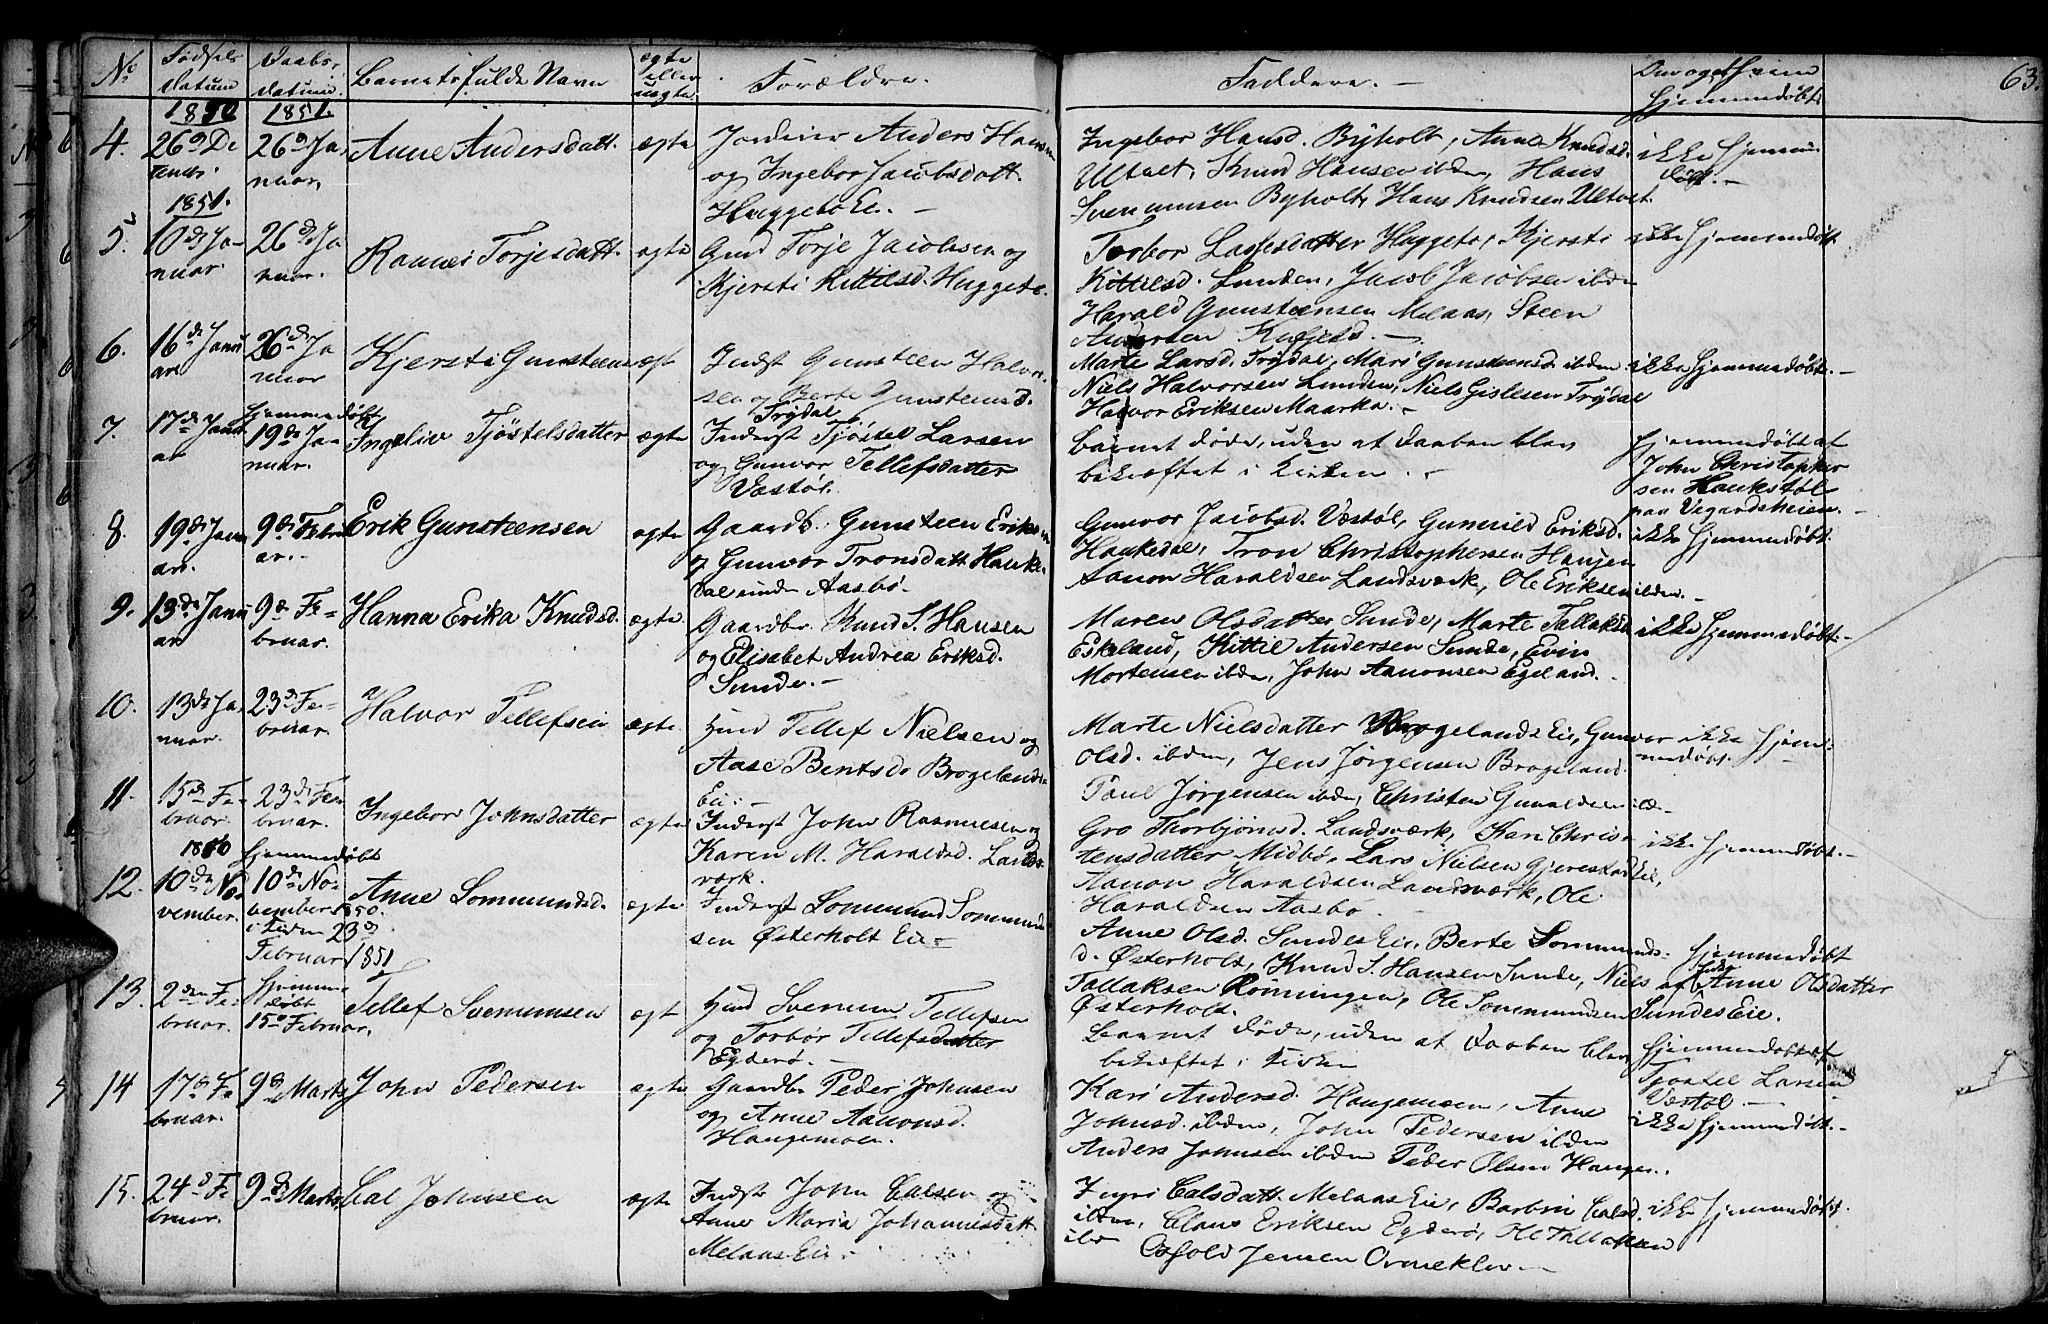 No Fødsels Datum Daabs- datum. Barnets fulde Navn ægte eller uægte Forældre. Faddere. Om og af hvem hjemmedøbt 63.
1850 1851.
4. 26de De cember. 26de Ja nuar. Anne Andersdatt. ægte Anders Hansen og Ingebor Jacobsdatt. Huggeto Eie.
Ingebor Hansd. Byholt, Anne Knudsd.
Ultvet, Knud Hansen ibden, Hans
Svenumsen Byholt, Hans Knudsen Ultvet.
ikke hjemme døbt.
1851.
5. 10de Ja nuar. 26de Ja nuar. Torjesdatt. ægte Torje Jacobsen og
Kjersti Kittilsd. Huggeto.
Torbor Huggeto, Kjersti
Kittilsd. Lunden, Jacob Jacobsen ibden
Harald Gunsteensen Melaas, Steen
Andersen
ikke hjemmedøbt
6. 16de Janu ar. 26de Ja nuar Kjersti Gunsteens ægt Indst Gunsteen Halvor
sen og Berte Gunsteensd.
Trydal
Marte Larsd. Trydal, Mari Gunsteensd. ibden
Niels Halvorsen Lunden, Niels Gislesen Trydal
Halvor Eriksen Maarka.
ikke hjemmedøbt.
7. 17de Janu ar hjemmedøbt 19de Ja nuar. Ingeliv Tjøstelsdatter ægte Inderst Tjøstel Larsen
og Gunvor Tellefsdatter
Væstøl.
Barnet døde, uden at Daaben blev
bekræftet i Kirken.
hjemmedøbt af
John Christopher
sen Haukstøl
paa Vegardsheien.
8. 19de Janu ar. 9de Febru ar. Erik Gunsteensen ægte Gaardb. Gunsteen Eriksen
og Gunvor Tronsdatt. Hauke
dal Aasbø.
Gunvor Jacobsd. Væstøl, Gunnild Eriksd.
Haukedal, Tron Christophersen Haugen
Aanon Haraldsen Landsverk, Ole Eriksen ibden.
ikke hjemmedøbt
9. 13de Janu ar 9de Fe bruar. Hanna Erika Knudsd. ægte Gaardbr. Knud S. Hansen
og Elisabet Andrea Eriksd.
Sunde.
Maren Olsdatter Sunde, Marte Tallaksd.
Eskeland, Kittil Andersen Sunde, Evin
Mortensen ibden, John Aanonsen Egeland.
ikke hjemmedøbt.
10. 13de Ja nuar. 23de Fe bruar. Halvor Tellefsen ægte. Tellef Nielsen og
Aase Bentsd. Brogelands
Eie.
Marte Nielsdatter Brogelands Eie, Gunvor
Olsd. ibden, Jens Jørgensen Brogeland
Paul Jørgensen ibden, Christen Gunuldsen
ikke hjem medøbt.
11. 15de Fe bruar. 23de Fe bruar. Ingebor Johnsdatter ægte Inderst John Rasmusen og
Karen M. Haraldsd. Lands
værk.
Gro Thorbjørnsd. Landsværk, Karen Chris
tensdatter Midbø, Lars Nielsen Gjerestad Eie,
Aanon Haraldsen Landsværk, Ole
Haraldsen Aasbø.
ikke hjemmedøbt.
1850 hjemmedøbt
12. 10de No vember. 10de No vember 1850. i Kirken 23de Februar 1851 Anne Sommundsd. ægte Inderst Sommund Sommund
sen Østerholt Eie
Anne Olsd. Sundes Eie, Berte Sommunds
d. Østerholt, Knud S. Hansen Sunde, Niels
Tallaksen Rønningen, Ole Sommundsen
Østerholt.
hjemmedøbt
af Anne Olsdatter
Sundes Eie.
13. 2den Fe bruar. hjemme døbt 15de Februar. Tellef Svenumsen ægt Svenum Tellefsen
og Torbor Tellefsdatter
Egderø.
Barnet døde, uden at Daaben blev
bekræftet i Kirken
hjemmedøbt af
Tjøstel Larsen
Væstøl.
14 17de Fe bruar. 9de Marts John Pedersen ægte Gaardbr Peder Johnsen
og Anne Aanonsd.
Haugemoen.
Kari Andersd. Haugemoen, Anne
Johnsd. ibden, John Pedersen ibden
Anders Johnsen ibden Peder Olsen Haugen.
ikke hjemmedøbt.
15. 24de Fe bruar. 9de Marts Cal Johnsen ægte Indst John Calsen og
Anne Maria Johannesdatt.
Melaas Eie.
Ingri Calsdatt. Melaas Eie, Barbro Calsd.
ibden, Claus Eriksen Egderø, Ole Tallaksen
ibd Jensen Ormeklev
ikke hjemmedøbt.